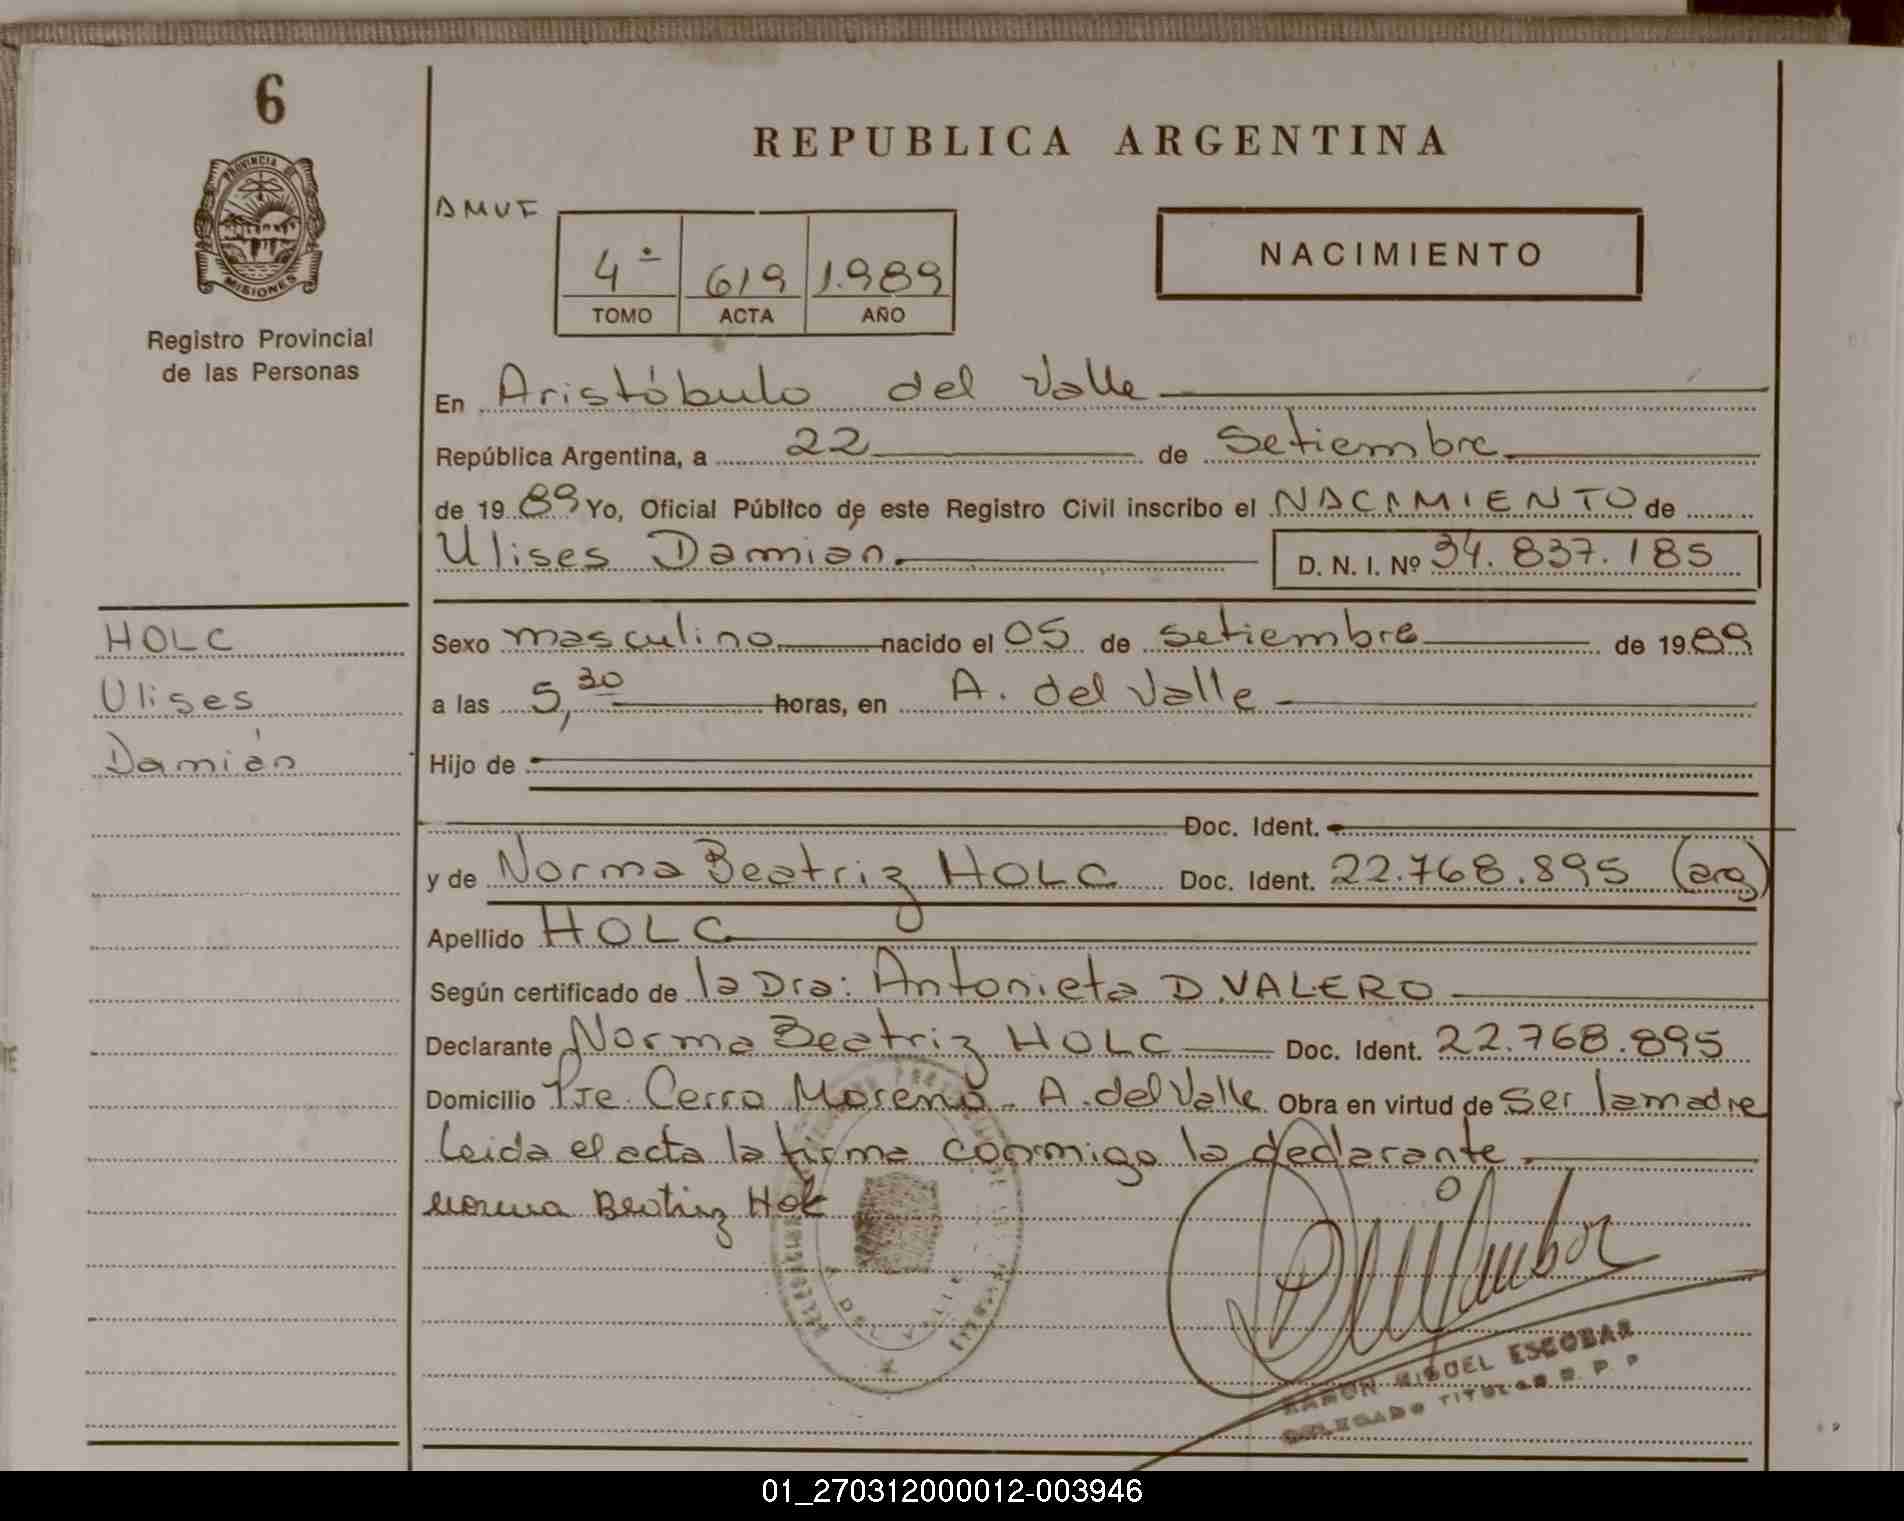 6
PROVINCIA DE
MISIONES
Registro Provincial
de las Personas
REPUBLICA ARGENTINA
NACIMIENTO
4ª 619 1.989
TOMO ACTA AÑO
En Aristóbulo del Valle
República Argentina, a 22 de Setiembre
de 1989 Yo, Oficial Público de este Registro Civil inscribo el NACIMIENTO de
Ulises Damian. D. N. I. Nº 34.837.185
HOLC
Ulises
Damián
Sexo masculino nacido el 05 de setiembre de 1989
a las 5,30 horas, en A. del Valle
Hijo de
Doc. Ident.
y de Norma Beatriz HOLC Doc. Ident. 22.768.895 (arg)
Apellido HOLC
Según certificado de la Dra: Antonieta D. VALERO
Declarante Norma Beatriz HOLC Doc. Ident. 22.768.895
Domicilio Pje. Cerro Moreno - A. del Valle. Obra en virtud de ser la madre
Leida el acta la firma conmigo la declarante.
Norma Beatriz Holc
DEL VALLE
RAMON MIGUEL ESCOBAR
DELEGADO TITULAR R. P. P
01_270312000012-003946